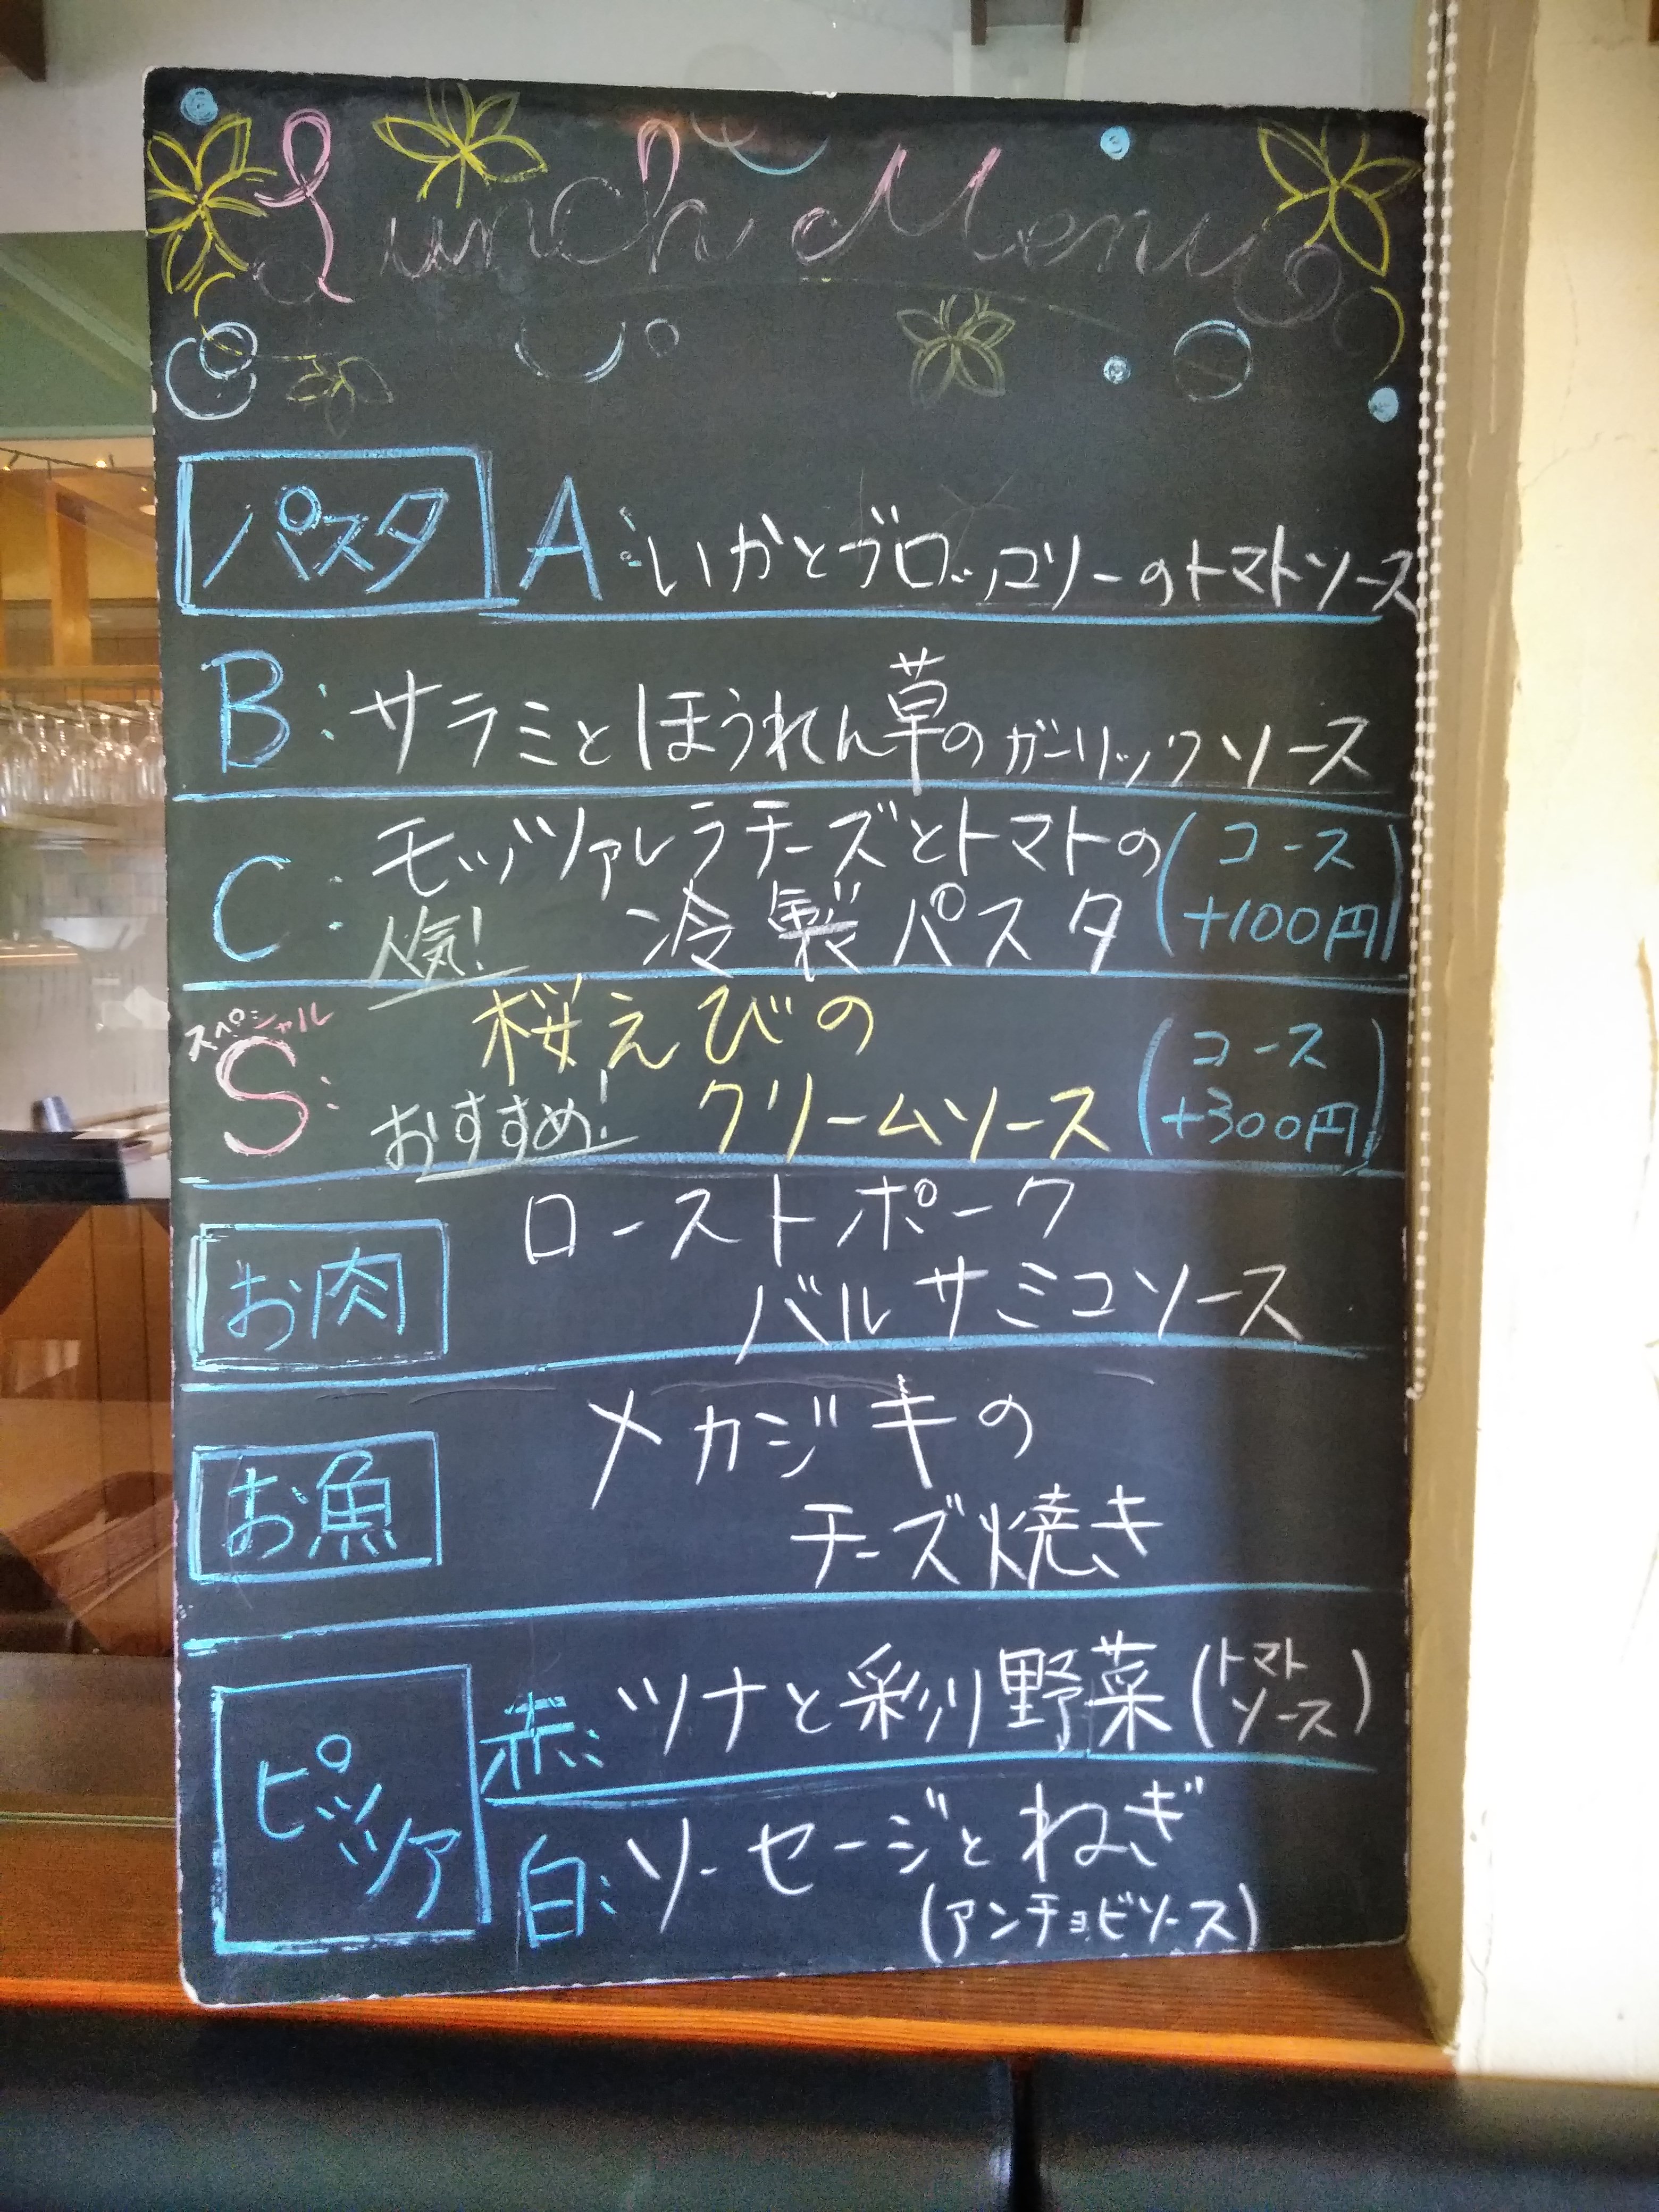 Lunch Menu
パスタ A:いかとブロッコリーのトマトソース
B:サラミとほうれん草のガーリックソース
C:モッツァレラチーズとトマトの
人気! 冷製パスタ
(コース
+100円)
スペシャル
S:桜えびの
おすすめ! クリームソース
(コース
+300円)
お肉
ローストポーク
バルサミコソース
お魚
メカジキの
チーズ焼き
ピッツァ
赤:ツナと彩り野菜(トマトソース)
白:ソーセージとねぎ
(アンチョビソース)